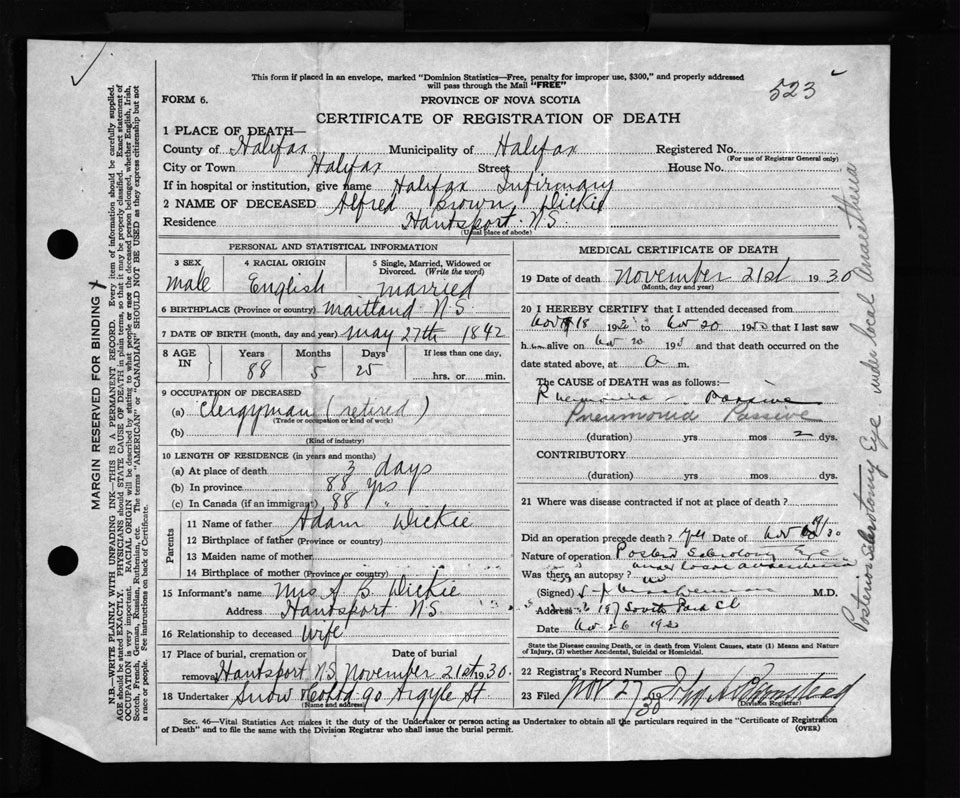 This form if placed in an envelope, marked "Dominion Statistics—Free, penalty for improper use, $300," and properly addressed
will pass through the Mail "FREE"
523
FORM 6.
PROVINCE OF NOVA SCOTIA
CERTIFICATE OF REGISTRATION OF DEATH
1 PLACE OF DEATH—
County of Halifax Municipality of Halifax Registered No.
(For use of Registrar General only)
City or Town Halifax Street House No.
If in hospital or institution, give name Halifax Infirmary
2 NAME OF DECEASED Alfred Brown Dickie
Residence Hantsport N S.
(Usual place of abode)
PERSONAL AND STATISTICAL INFORMATION
3 SEX 4 RACIAL ORIGIN 5 Single, Married, Widowed or Divorced. (Write the word)
male English married
6 BIRTHPLACE (Province or country) Maitland N S
7 DATE OF BIRTH (month, day and year) May 27th 1842
8 AGE IN Years Months Days If less than one day,
88 5 25 hrs. or min.
9 OCCUPATION OF DECEASED
(a) Clergyman (retired)
(Trade or occupation or kind of work)
(b)
(Kind of industry)
10 LENGTH OF RESIDENCE (in years and months)
(a) At place of death 3 days
(b) In province 88 yrs
(c) In Canada (if an immigrant) 88 "
Parents
11 Name of father Adam Dickie
12 Birthplace of father (Province or country)
13 Maiden name of mother
14 Birthplace of mother (Province or country)
15 Informant's name Mrs A B. Dickie
Address Hantsport N S.
16 Relationship to deceased Wife
17 Place of burial, cremation or removal Date of burial
Hantsport N S. November 21st 1930.
18 Undertaker Snow & Co Ltd 90 Argyle St
(Name and address)
MEDICAL CERTIFICATE OF DEATH
19 Date of death November 21st 1930
(Month, day and year)
20 I HEREBY CERTIFY that I attended deceased from
Nov 18 19 to Nov 20 19 that I last saw
h alive on Nov 20 19 and that death occurred on the
date stated above, at a m.
The CAUSE OF DEATH was as follows:
Pneumonia - Passive
Pneumonia Passive
(duration) yrs mos 2 dys.
CONTRIBUTORY
(duration) yrs. mos. dys.
21 Where was disease contracted if not at place of death?
Did an operation precede death? Yes Date of Nov 30
Nature of operation Posterior Sclerotomy Eye
under local anaesthesia
Was there an autopsy? no
(Signed) M.D.
Address 197 South Park St
Date Nov 26 19
State the Disease causing Death, or in death from Violent Causes, state (1) Means and Nature
of Injury, (2) whether Accidental, Suicidal or Homicidal.
22 Registrar's Record Number
23 Filed Nov 27 1930
(Division Registrar)
Sec. 46—Vital Statistics Act makes it the duty of the Undertaker or person acting as Undertaker to obtain all the particulars required in the "Certificate of Registration
of Death" and to file the same with the Division Registrar who shall issue the burial permit.
(OVER)
Posterior Sclerotomy Eye under local Anaesthesia
MARGIN RESERVED FOR BINDING
N.B.—WRITE PLAINLY WITH UNFADING INK—THIS IS A PERMANENT RECORD. Every item of information should be carefully supplied.
AGE should be stated EXACTLY. PHYSICIANS should STATE CAUSE OF DEATH in plain terms, so that it may be properly classified. Exact statement of
OCCUPATION is very important. RACIAL ORIGIN will be described by stating to what people or race the deceased person belonged, whether English, Irish,
Scotch, French, German, Russian, Ruthenian, etc. The terms "AMERICAN" or "CANADIAN" SHOULD NOT BE USED as they express citizenship but not
a race or people. See instructions on back of Certificate.